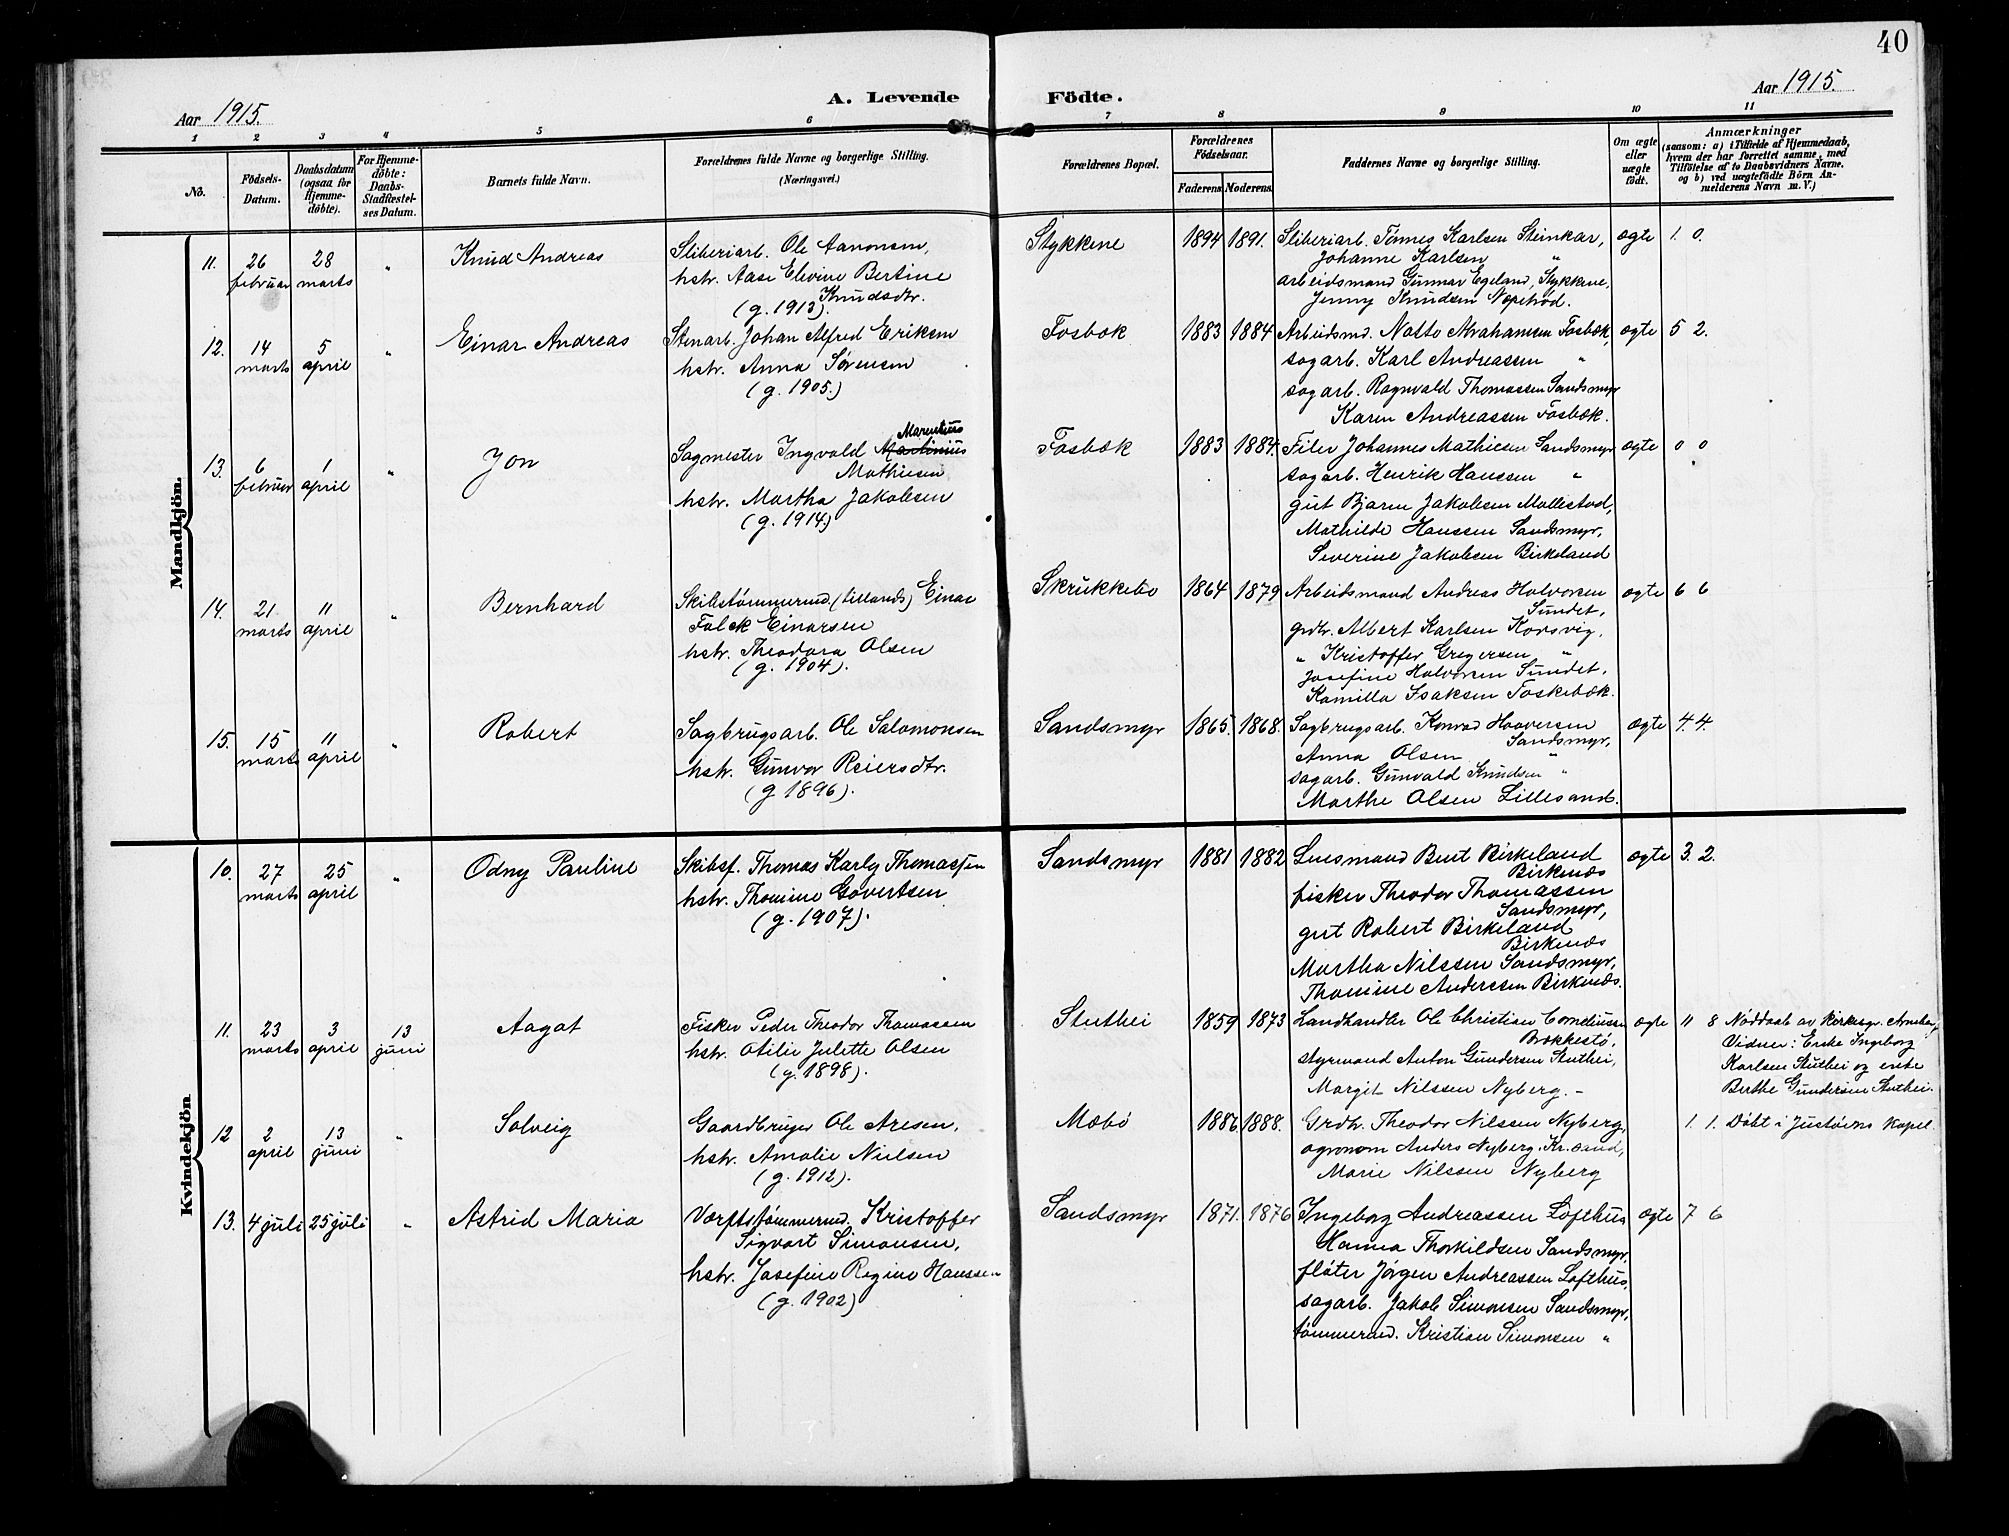 40
Aar 1915.
A. Levende Födte.
Aar 1915.
1 2 3 4 5 6 7 8 9 10 11
No.
Födsels-
Datum.
Daabsdatum
(ogsaa for
Hjemme-
döbte).
For Hjemme-
döbte:
Daabs-
Stadfæstel-
ses Datum.
Barnets fulde Navn.
Forældrenes fulde Navne og borgerlige Stilling.
(Næringsvei.)
Forældrenes Bopæl.
Forældrenes
Födselsaar.
Faderens. Moderens.
Faddernes Navne og borgerlige Stilling.
Om ægte
eller
uægte
födt.
Anmærkninger
(saasom: a) i Tilfælde af Hjemmedaab,
hvem der har forrettet samme, med
Tilföielse af to Daabsvidners Navne.
og b) ved uægtefödte Börn An-
melderens Navn m. V.)
Mandkjön.
11. 26 februar 28 marts " Knud Andreas
Sliberiarb. Ole Aanonsen,
hstr. Aase Elevine Bertine
Knudsdtr.
(g. 1913).
Stykkene 1894 1891.
Sliberiarb. Tønnes Karlsen Steinkar,
Johanne Karlsen "
arbeidsmand Gunnar Egeland, Stykkene,
Jenny Knudsen Næpstød.
ægte 1. 0.
12. 14 marts 5 april " Einar Andreas
Stenarb. Johan Alfred Eriksen
hstr. Anna Sørensen
(g. 1905.)
Fosbæk 1883 1884
Arbeidsmd. Notto Abrahamsen Fosbæk,
sagarb. Karl Andreassen "
sagarb. Ragnvald Thomassen Sandsmyr
Karen Andreassen Fosbæk.
ægte 5 2.
13. 6 februar 1 april " Jon
Marentius
Sagmester Ingvald Martinius
Mathiesen
hstr. Martha Jakobsen
(g. 1914)
Fosbæk 1883 1884.
Filer Johannes Mathiesen Sandsmyr
sagarb. Henrik Hanssen "
gut Bjarne Jakobsen Mollestad,
Mathilde Hanssen Sandsmyr,
Severine Jakobsen Birkeland
ægte 0 0
14. 21. marts 11 april " Bernhard
Skibstømmermd. (tillands) Einar
Falck Einarsen
hstr. Theodora Olsen
(g. 1904).
Skrukkebo 1864 1879
Arbeidsmand Andreas Halvorsen
Sundet,
grdbr. Albert Karlsen Korsvig,
" Kristoffer Gregersen "
Josefine Halvorsen Sundet,
Kamilla Isaksen Foskebæk.
ægte 6 6
15. 15 marts 11 april " Robert
Sagbrugsarb. Ole Salomonsen
hstr. Gunvor Reiersdtr.
(g 1896).
Sandsmyr 1865. 1868.
Sagbrugsarb. Konrad Haaversen
Sandsmyr,
Anna Olsen "
sagarb. Gunvald Knudsen "
Marthe Olsen Lillesand.
ægte 4. 4.
Kvindekjön
10. 27 marts 25 april " Odny Pauline
Skibsf. Thomas Karly Thomassen
hstr. Thomine Govertsen
(g. 1907).
Sandsmyr 1881 1882
Lensmand Bent Birkeland
Birkenæs
fisker Theodor Thomassen
Sandsmyr,
gut Robert Birkeland
Birkenæs
Martha Nilssen Sandsmyr,
Thomine Andersen Birkenæs.
ægte 3. 2.
11. 23 marts 3 april 13 juni Aagot
Fisker Peder Theodor Thomassen
hstr. Otilie Julette Olsen
(g. 1898).
Stuthei 1859 1873
Landhandler Ole Christian Corneliussen
Brækkestø,
styrmand Anton Gundersen Stuthei,
Margit Nilssen Nyberg. -
ægte 11 8
Nøddaab av kirkesgr.
Vidner: Enke Ingeborg
Karlsen Stuthei og enke
Berthe Gundersen Stuthei.
12 2 april 13 juni " Solveig
Gaardbruger Ole Aresen,
hstr. Amalie Nielsen
(g. 1912).
Mæbø 1886. 1888.
Grdbr. Theodor Nilssen Nyberg,
agronom Anders Nyberg, Kr.sand,
Marie Nilssen Nyberg
1. 1. Døbt i Justøens kapel.
13. 4 juli 25 juli " Astrid Maria
Værftstømmermd. Kristoffer
Sigvart Simonsen,
hstr. Josefine Regine Hanssen
(g. 1902)
Sandsmyr 1871. 1876
Ingeborg Andreassen Lofthus
Hanna Thorkildsen Sandsmyr,
fløter Jørgen Andreassen Lofthus,
sagarb. Jakob Simonsen Sandsmyr,
tømmermd. Kristian Simonsen "
ægte 7 6